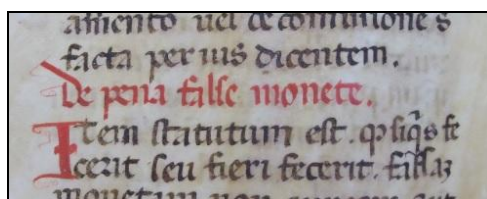 amento uel de comitione s
facta per ius dicentem.
De pena false monete.
Item statutum est. ꝙ siq̄s fe
cerit seu fieri fecerit. falsaꝫ
monetam non